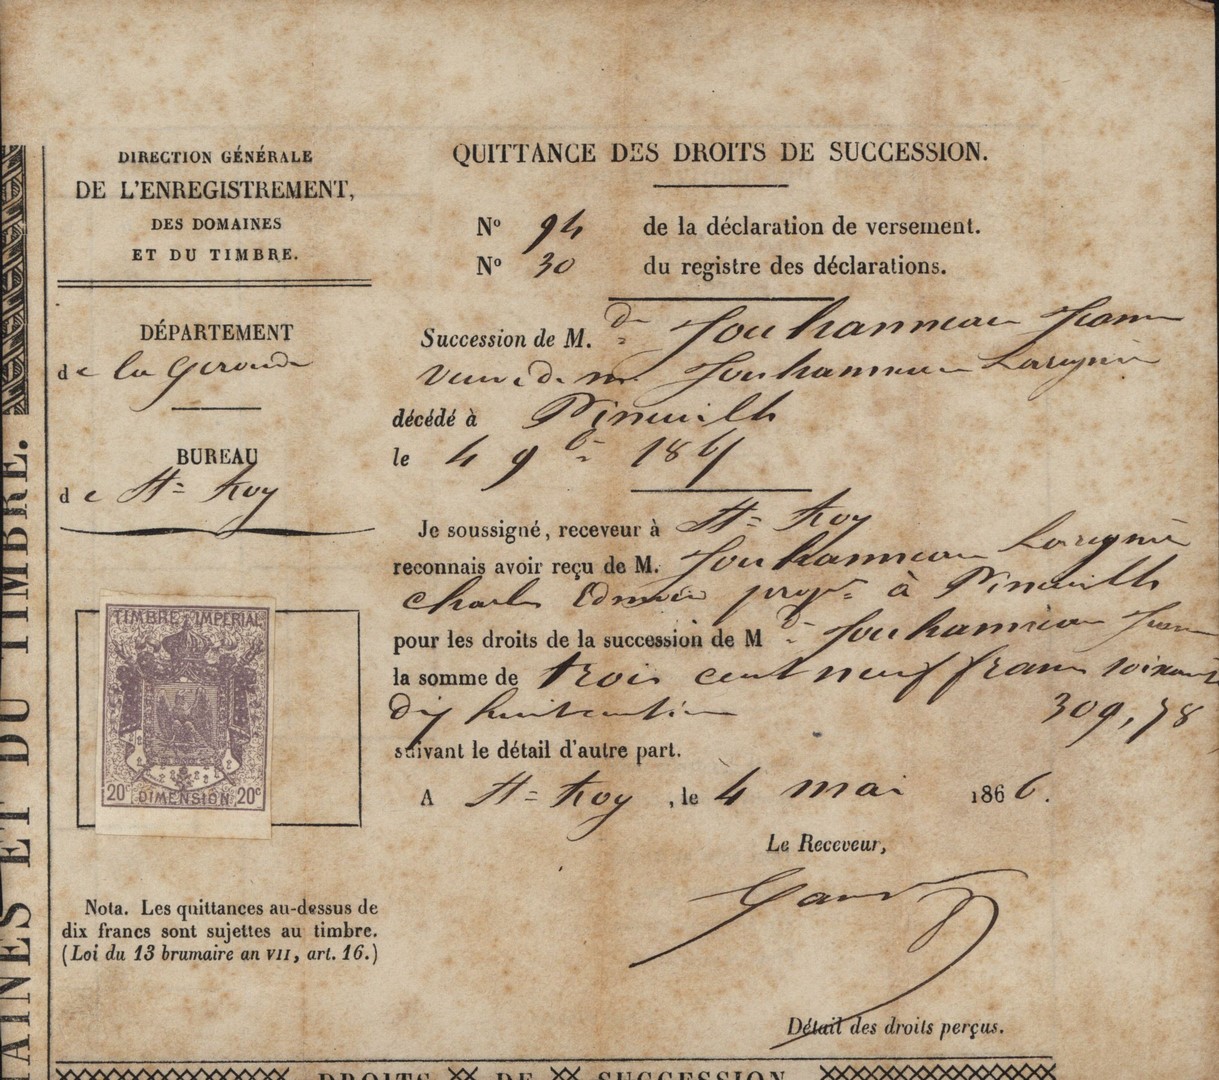 DIRECTION GÉNÉRALE
DE L'ENREGISTREMENT,
DES DOMAINES
ET DU TIMBRE.
DÉPARTEMENT
de la Gironde
BUREAU
de Ste Foy
TIMBRE IMPÉRIAL
20c DIMENSION 20c
Nota. Les quittances au-dessus de
dix francs sont sujettes au timbre.
(Loi du 13 brumaire an VII, art. 16.)
QUITTANCE DES DROITS DE SUCCESSION.
No 94 de la déclaration de versement.
No 30 du registre des déclarations.
Succession de M. de Jouhanneau Jeanne
veuve de M. Jouhanneau
décédé à Pineuilh
le 4 9bre 186
Je soussigné, receveur à Ste Foy
reconnais avoir reçu de M. Jouhanneau
Charles propre à Pineuilh
pour les droits de la succession de M de Jouhanneau Jeanne
la somme de trois cent neuf francs soixante
dix huit centimes 309,78
suivant le détail d'autre part.
A Ste Foy, le 4 mai 1866.
Le Receveur,
Détail des droits perçus.
AINES ET DU TIMBRE.
DROITS DE SUCCESSION